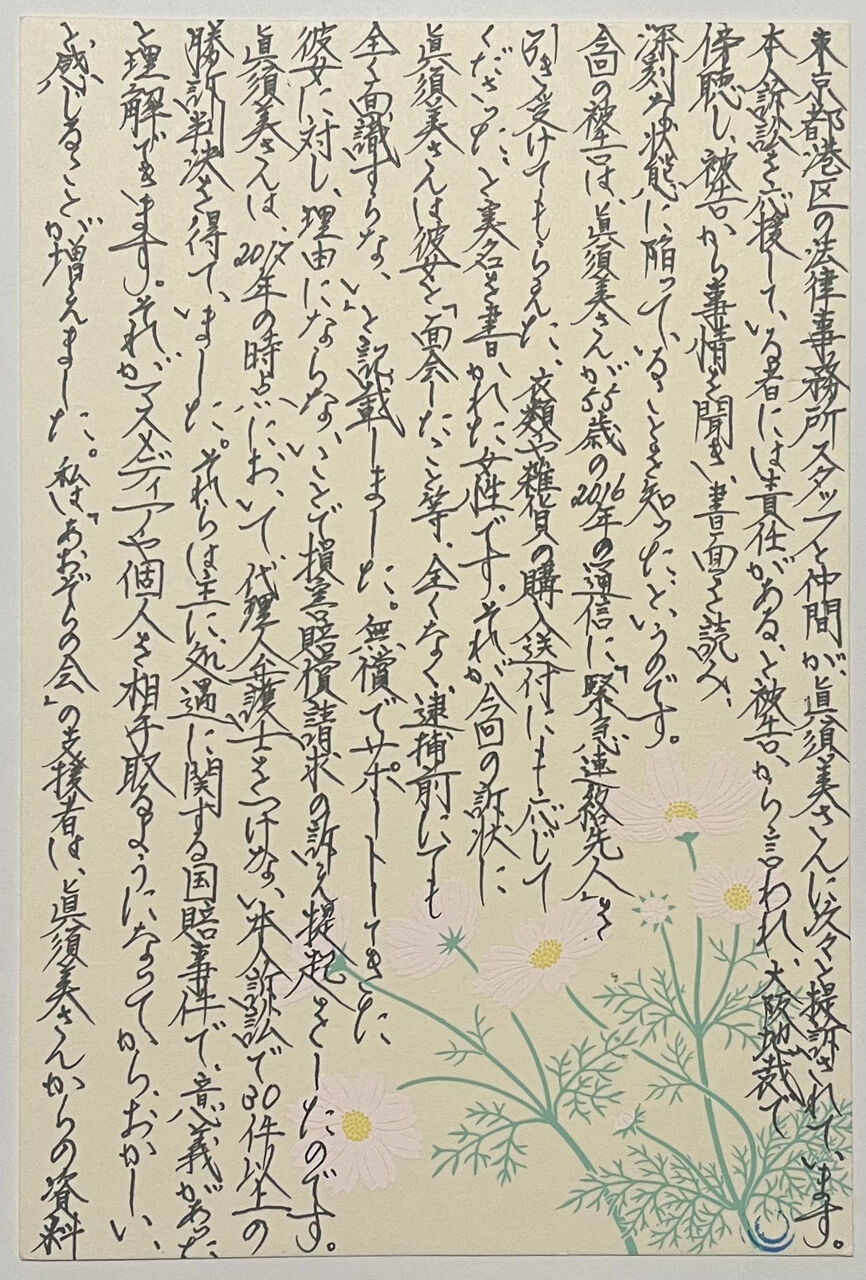 東京都港区の法律事務所スタッフと仲間が、眞須美さんに次々と提訴されています。
本人訴訟を応援している者には責任がある、と被告から言われ、大阪地裁で
傍聴し、被告から事情を聞き、書面を読み、
深刻な状態に陥っていることを知ったというのです。
今回の被告は、眞須美さんが55歳の2016年の通信に、「緊急連絡先人」を
引き受けてもらえた、衣類や雑貨の購入送付にも応じて
くださった、と実名を書かれた女性です。それが今回の訴状に
眞須美さんは彼女と「面会したこと等、全くなく逮捕前にても
全く面識すらない」と記載しました。無償でサポートしてきた
彼女に対し、理由にならないことで損害賠償請求の訴え提起をしたのです。
眞須美さんは、2017年の時点において、代理人弁護士をつけない本人訴訟で30件以上の
勝訴判決を得ていました。それらは主に、処遇に関する国賠事件で、意義があった
と理解できます。それがマスメディアや個人を相手取るようになってから、おかしい、
と感じることが増えました。私は「あおぞらの会」の支援者は、眞須美さんからの資料